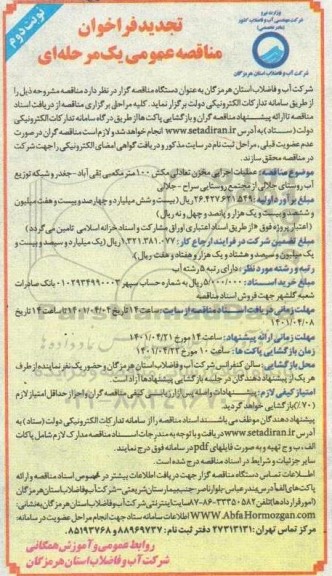 نوبت دوم
وزارت نیرو
شرکت مهندسی آب و فاضلاب کشور
شرکت آب و فاضلاب استان هرمزگان
تجدید فراخوان
مناقصه عمومی یک مرحله‌ای
شرکت آب و فاضلاب استان هرمزگان به عنوان دستگاه مناقصه گزار در نظر دارد مناقصه مشروحه ذیل را
از طریق سامانه تدارکات الکترونیکی دولت برگزار نماید. کلیه مراحل برگزاری مناقصه از دریافت اسناد
مناقصه تا ارائه پیشنهاد مناقصه گران و بازگشایی پاکت‌ها از طریق درگاه سامانه تدارکات الکترونیکی
دولت (ستاد) به آدرس www.setadiran.ir انجام خواهد شد و لازم است مناقصه گران در صورت
عدم عضویت قبلی، مراحل ثبت نام در سایت مذکور و دریافت گواهی امضای الکترونیکی را جهت شرکت
در مناقصه محقق سازند.
موضوع مناقصه: عملیات اجرایی مخزن تعادلی مکش ۱۰۰ متر مکعبی تقی آباد - حفدر و شبکه توزیع
آب روستای جلالی از مجتمع روستایی سراج - جلالی
مبلغ برآورد اولیه: ۲۶،۴۲۷،۶۲۱،۵۴۹ ریال (بیست و شش میلیارد و چهارصد و بیست و هفت میلیون
و ششصد و بیست و یک هزار و پانصد و چهل و نه ریال)
(اعتبار پروژه فوق از طریق اسناد اعتباری اوراق مشارکت و اسناد خزانه اسلامی تامین می گردد)
مبلغ تضمین شرکت در فرایند ارجاع کار: ۱،۳۲۱،۳۸۱،۰۷۷ ریال (یک میلیارد و سیصد و بیست و
یک میلیون و سیصد و هشتاد و یک هزار و هفتاد و هفت ریال).
رتبه و رشته مورد نظر: دارای رتبه ۵ رشته آب
مبلغ خرید اسناد: ۵/۰۰۰/۰۰۰ ریال به شماره حساب سپهر ۰۱۰۲۹۳۴۹۹۰۰۰۳ بانک صادرات
شعبه گلشهر جهت فروش اسناد مناقصه
مهلت زمانی دریافت اسناد مناقصه از سایت: ساعت ۱۴ تاریخ ۱۴۰۱/۰۴/۰۴ تا ساعت ۱۴ تاریخ
۱۴۰۱/۰۴/۰۸
مهلت زمانی ارائه پیشنهاد: ساعت ۱۴ مورخ ۱۴۰۱/۰۴/۲۱
زمان بازگشایی پاکت‌ها: ساعت ۱۰ مورخ ۱۴۰۱/۰۴/۲۲
محل بازگشایی: سالن کنفرانس شرکت آب و فاضلاب استان هرمزگان و حضور یک نفر نماینده از طرف
هر یک از پیشنهاد دهندگان در جلسه بازگشایی پیشنهادها آزاد است.
امتیاز کیفی لازم: پیشنهادات واصله پس از ارزشیابی کیفی مناقصه گران و احراز حداقل امتیاز لازم
(۷۰٪) بازگشایی خواهد گردید.
پیشنهاد دهندگان موظف می باشند اسناد مناقصه را از سامانه تدارکات الکترونیکی دولت (ستاد) به
آدرس www.setadiran.ir دریافت و با توجه به مندرجات اسناد مناقصه مدارک لازم شامل پاکات
الف، ب و ج تهیه و به صورت فایلهای pdf در سامانه فوق درج نمایند.
سایر جزئیات و شرایط در اسناد مناقصه درج شده است.
اطلاعات تماس دستگاه مناقصه گزار جهت دریافت اطلاعات بیشتر در خصوص اسناد مناقصه و ارائه
WWW.AbfaHormozgan.com اطلاعات سامانه ستاد جهت انجام مراحل عضویت در سامانه:
مرکز تماس تهران: ۲۷۳۱۳۱۳۱ دفتر ثبت نام: ۸۸۹۶۹۷۳۷ و ۸۵۱۹۳۷۶۸
روابط عمومی و آموزش همگانی
شرکت آب و فاضلاب استان هرمزگان